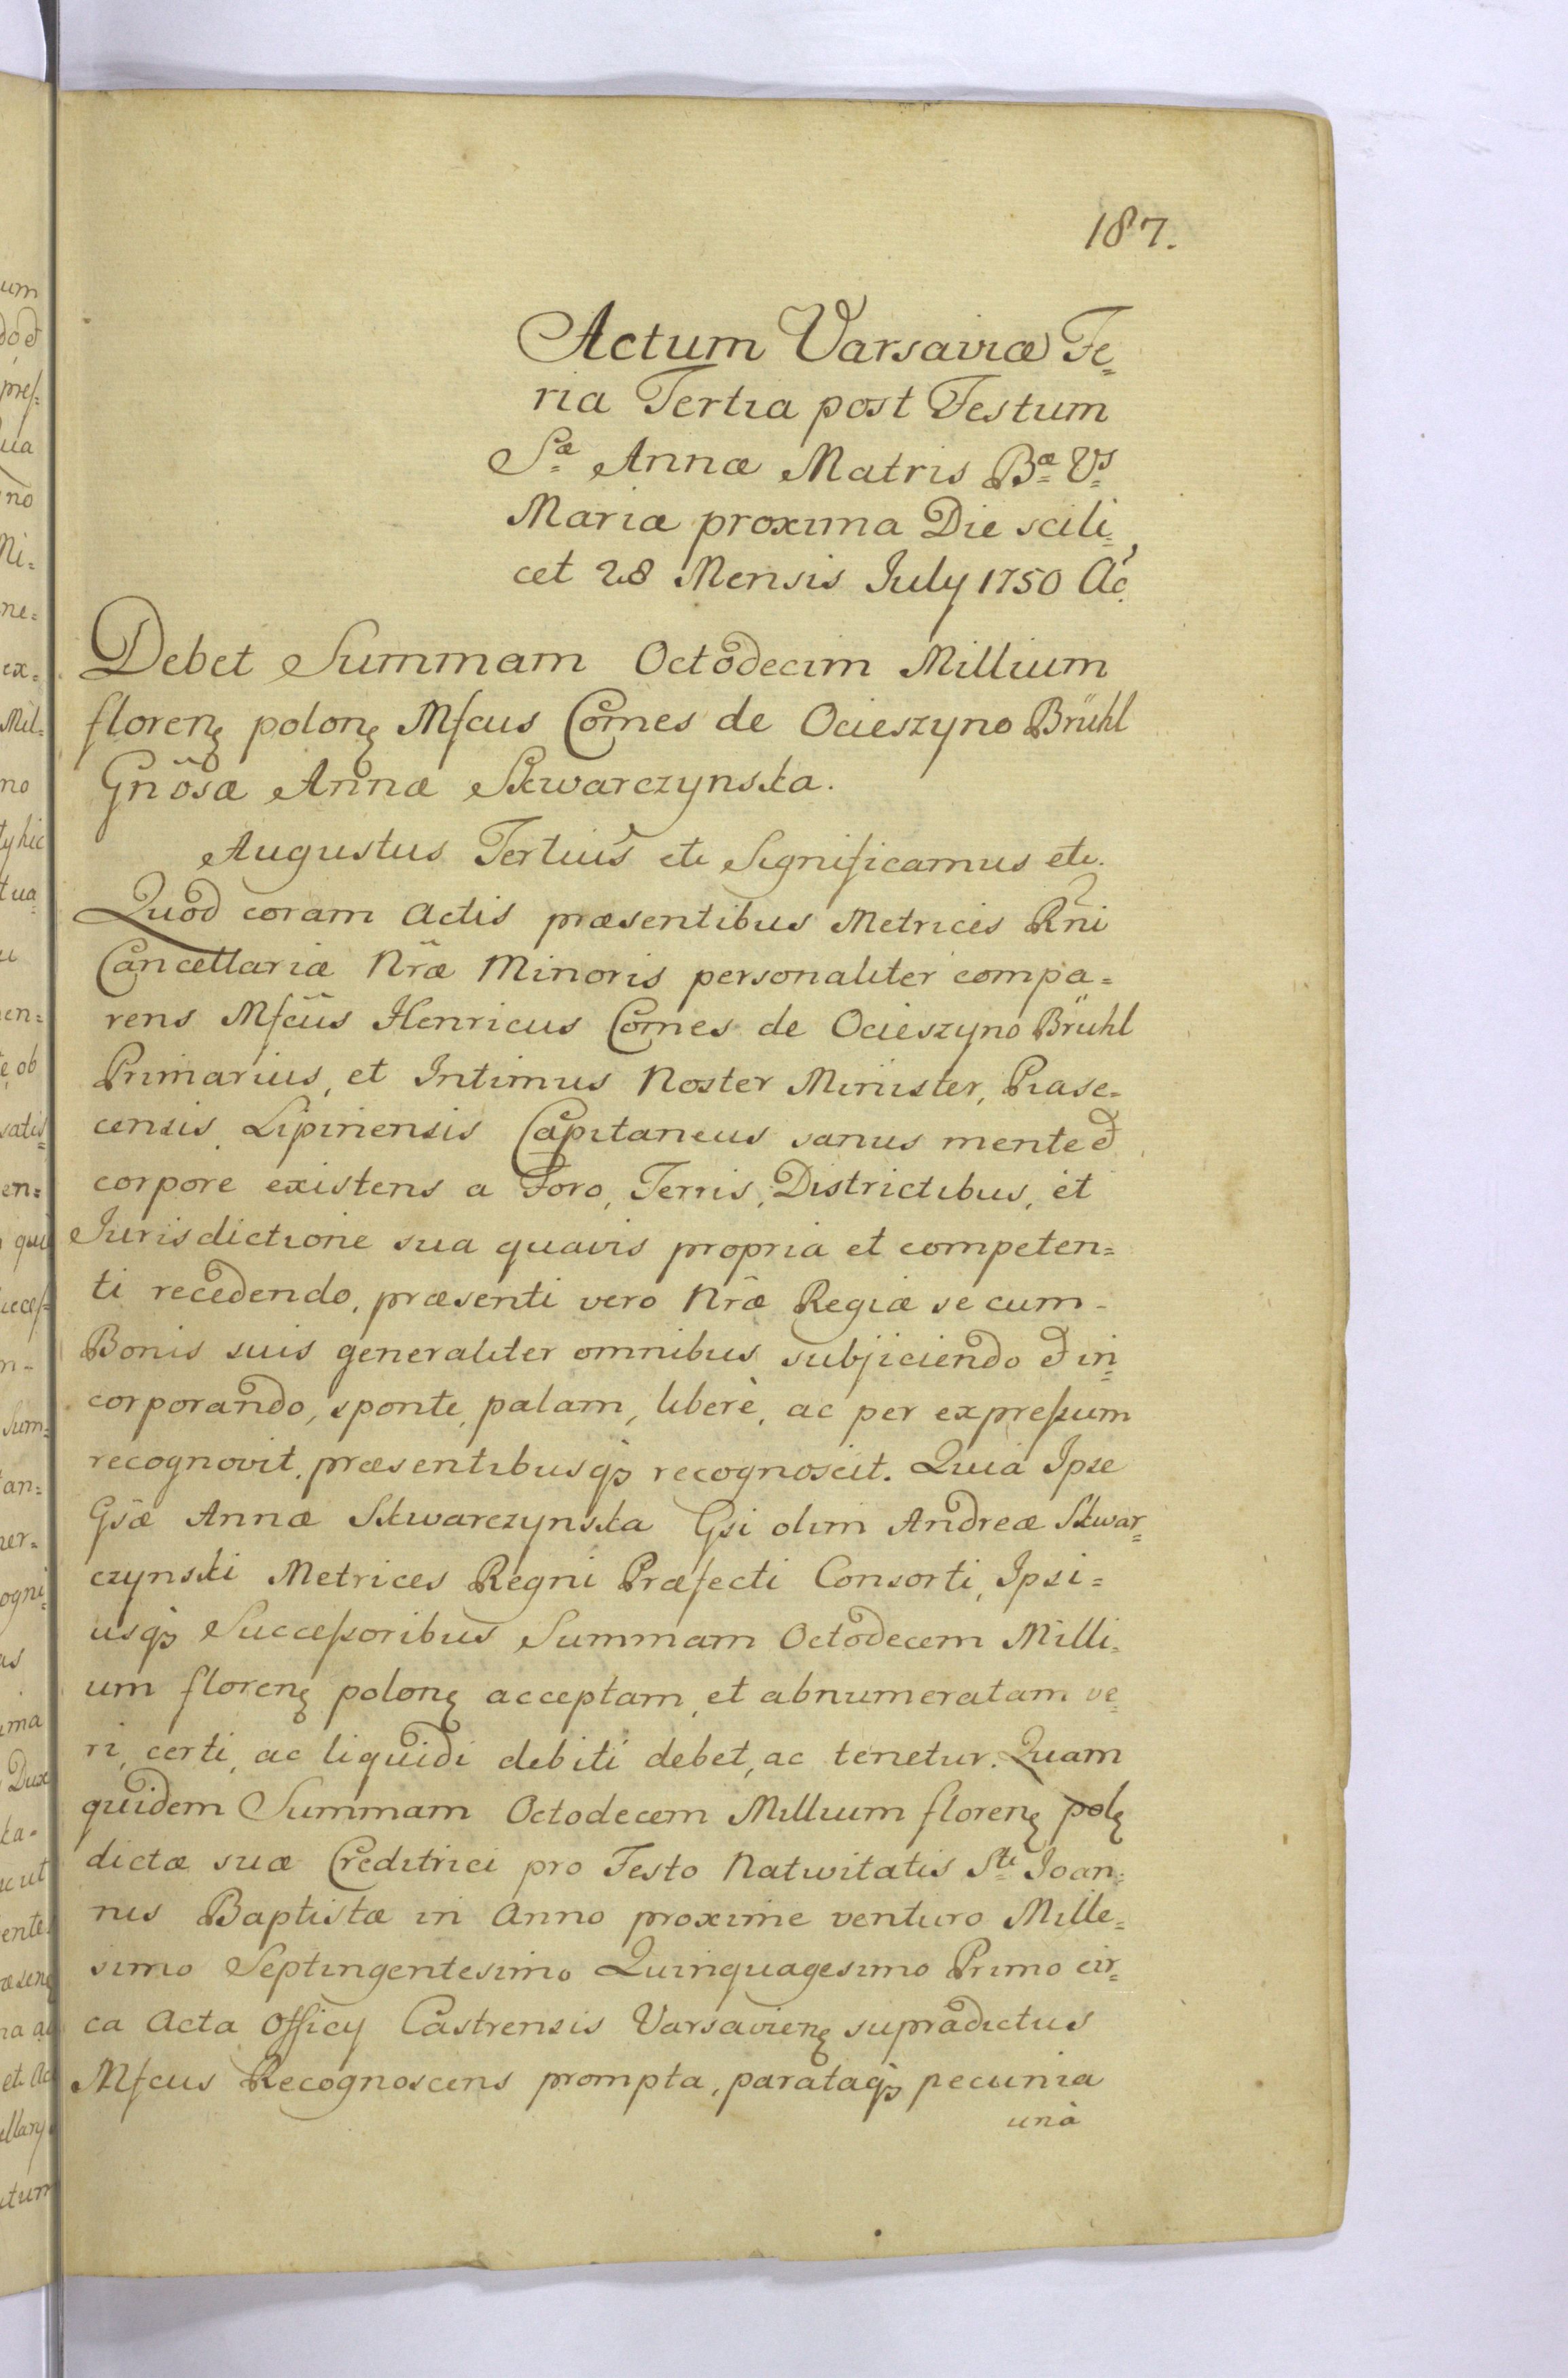 187.
Actum Varsaviæ Fe=
ria Tertia post Festum
Sæ Annæ Matris Bæ Vs
Mariæ proxima Die scili=
cet 28 Mensis July 1750 Ao.
Debet Summam Octodecim Millium
florenꝫ polonꝫ Mfcus Comes de Ocieszyno Brühl
Gnõsæ Annæ Skwarczynska.
Augustus Tertius etc Significamus etc.
Quod coram Actis præsentibus Metrices Rñi
Cancellariæ Nr̃æ Minoris personaliter compa=
rens Mfcũs Henricus Comes de Ocieszyno Brühl
Primarius, et Intimus Noster Minister, Piase=
censis, Lipinensis Capitaneus sanus mente et
corpore existens a Foro, Terris, Districtibus, et
Jurisdictione sua quavis propria et competen=
ti recedendo, præsenti vero Nr̃æ Regiæ se cum
Bonis suis generaliter omnibus subjiciendo et in=
corporando, sponte, palam, liberè, ac per expreßum
recognovit, præsentibusqꝫ recognoscit. Quia Ipse
Gsæ Annæ Skwarczynska Gsi olim Andreæ Skwar=
czynski Metrices Regni Præfecti Consorti, Ipsi=
usqꝫ Succeßoribus Summam Octodecem Milli=
um florenꝫ polonꝫ acceptam, et abnumeratam ve=
ri, certi, ac liquidi debiti debet, ac tenetur. Quam
quidem Summam Octodecem Millium florenꝫ polꝫ
dictæ suæ Creditrici pro Festo Nativitatis Sti Joan=
nis Baptistæ in Anno proxime venturo Mille=
simo Septingentesimo Quinquagesimo Primo cir=
ca Acta Officy Castrensis Varsavienꝫ supradictus
Mfcus Recognoscens prompta, parataqꝫ pecunia
unà